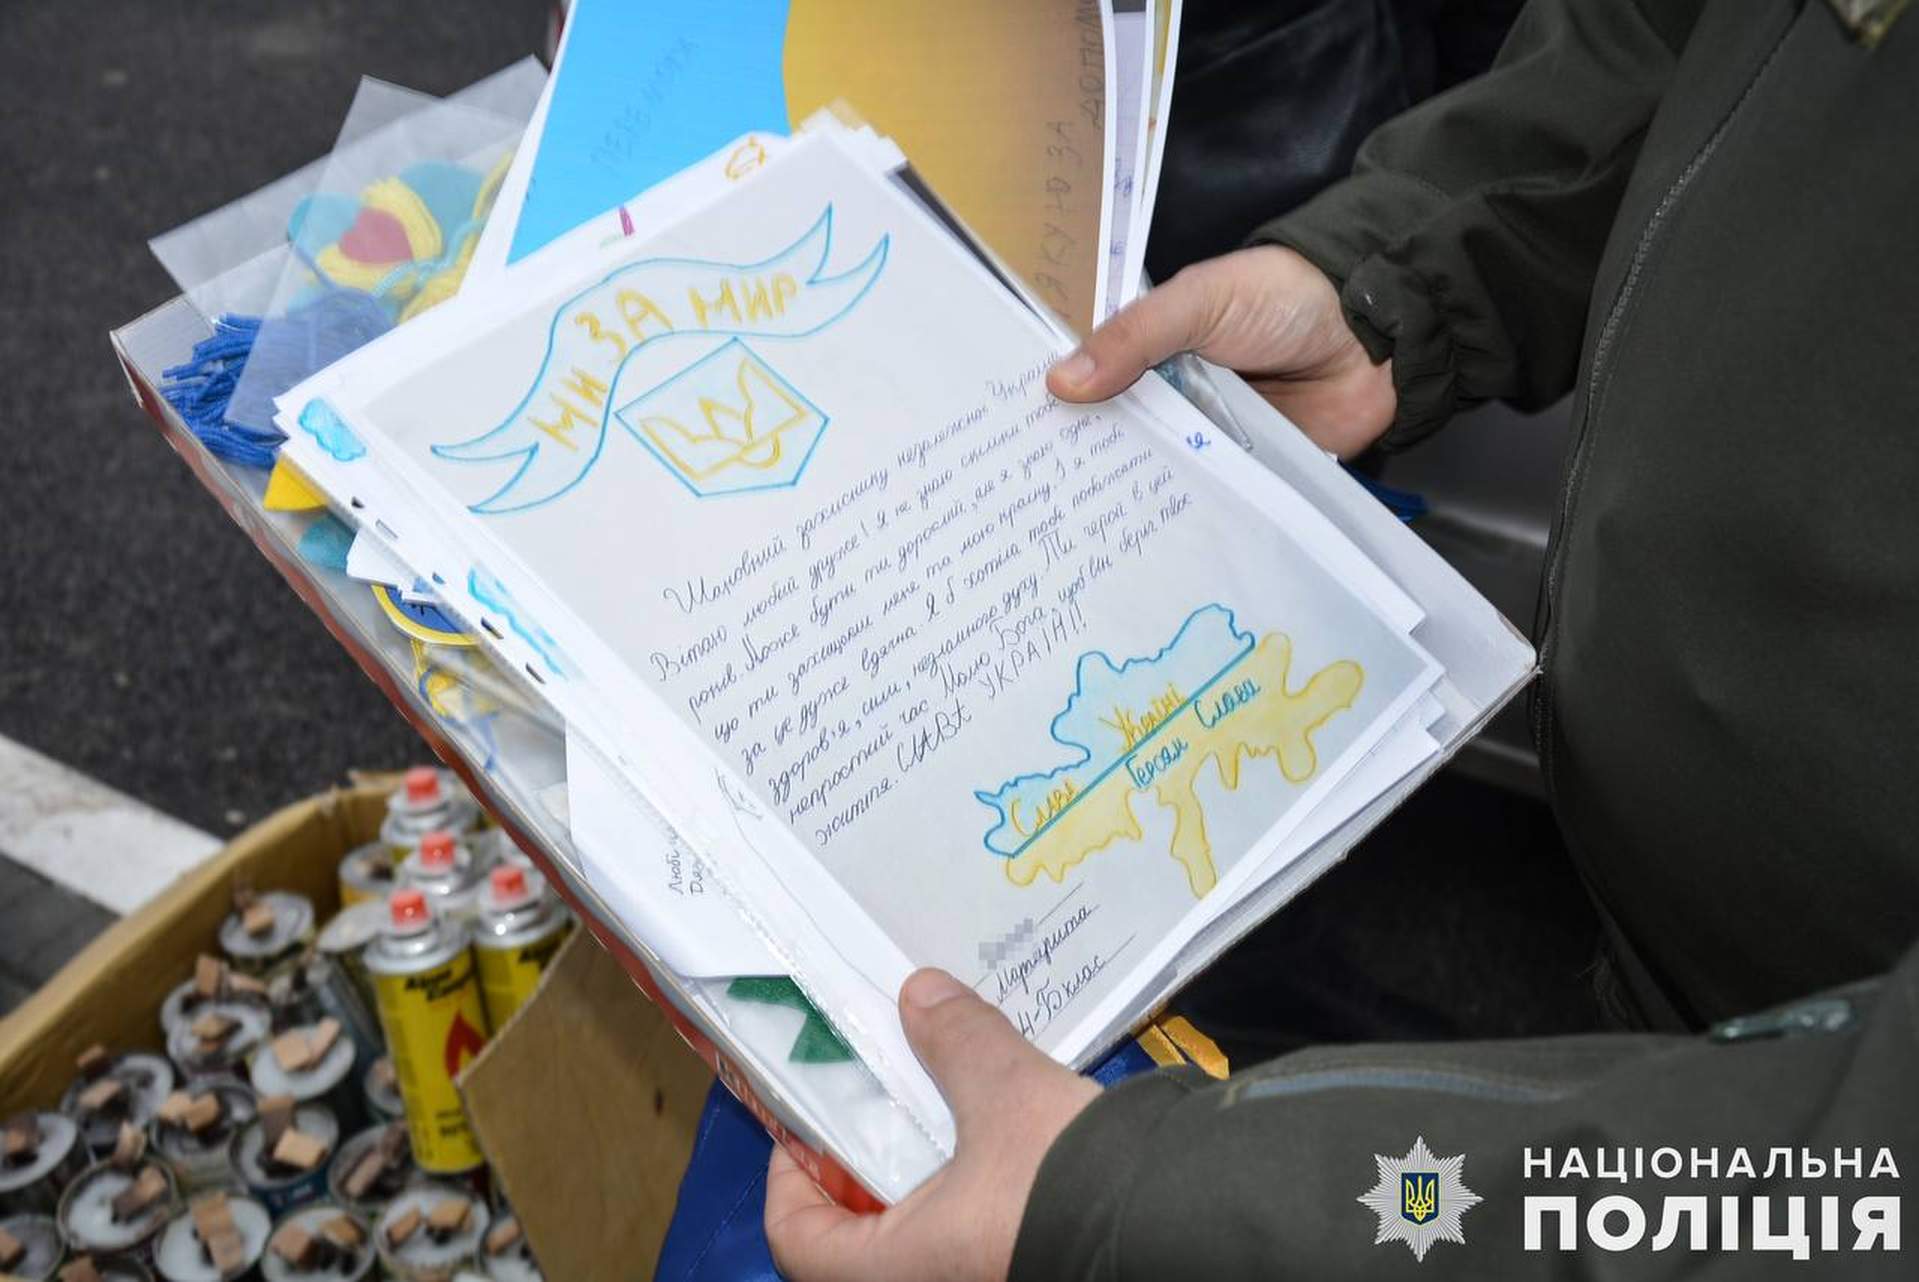 МИ ЗА МИР
Шановний захиснику незалежної України
Вітаю любий друже! Я не знаю скільки тобі
років. Може бути ти дорослий, але я знаю одне,
що ти захищаєш мене та мою країну. І я тобі
за це дуже вдячна. Я б хотіла тобі побажати
здоров'я, сили, незламного духу. Ти герой в цей
непростий час. Молю Бога щоб він беріг твоє
життя. СЛАВА УКРАЇНІ!
Слава Україні
Героям Слава
Маргарита
4-Б клас
ДЯКУЮ ЗА
НАЦІОНАЛЬНА
ПОЛІЦІЯ